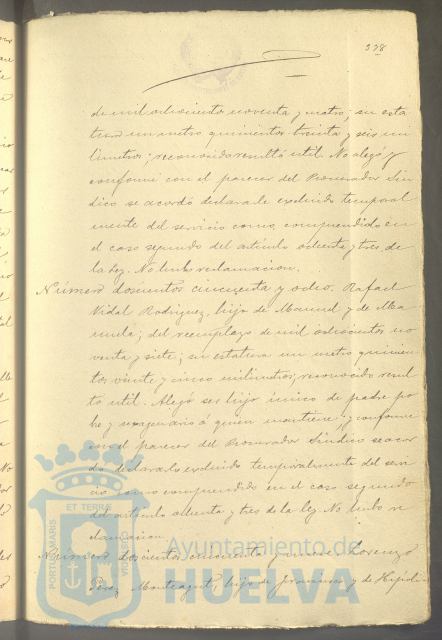 328
de mil ochocientos noventa y cuatro; su esta
tura un metro quinientos treinta y seis mi
límetros; reconocido resultó útil. No alegó y
conforme con el parecer del Procurador Sín
dico se acordó declararle excluido temporal
mente del servicio como comprendido en
el caso segundo del artículo ochenta y tres de
la Ley. No hubo reclamacion.
Número doscientos cincuenta y ocho. Rafael
Vidal Rodriguez, hijo de Manuel y de Ma
nuela; del reemplazo de mil ochocientos no
venta y siete; su estatura un metro quinien
tos veinte y cinco milimetros; reconocido resul
tó útil. Alegó ser hijo único de padre po
bre y sexagenario á quien mantiene y conforme
con el parecer del Procurador Síndico se acor
dó declararlo excluido temporalmente del servi
cio como comprendido en el caso segundo
del artículo ochenta y tres de la ley. No hubo re
clamacion.
Número doscientos cincuenta y nueve. Lorenzo
Perez Monteagut, hijo de Francisco y de Hipólita
PORTUS MARIS
ET TERRAE
CUSTODIA
Ayuntamiento de
HUELVA